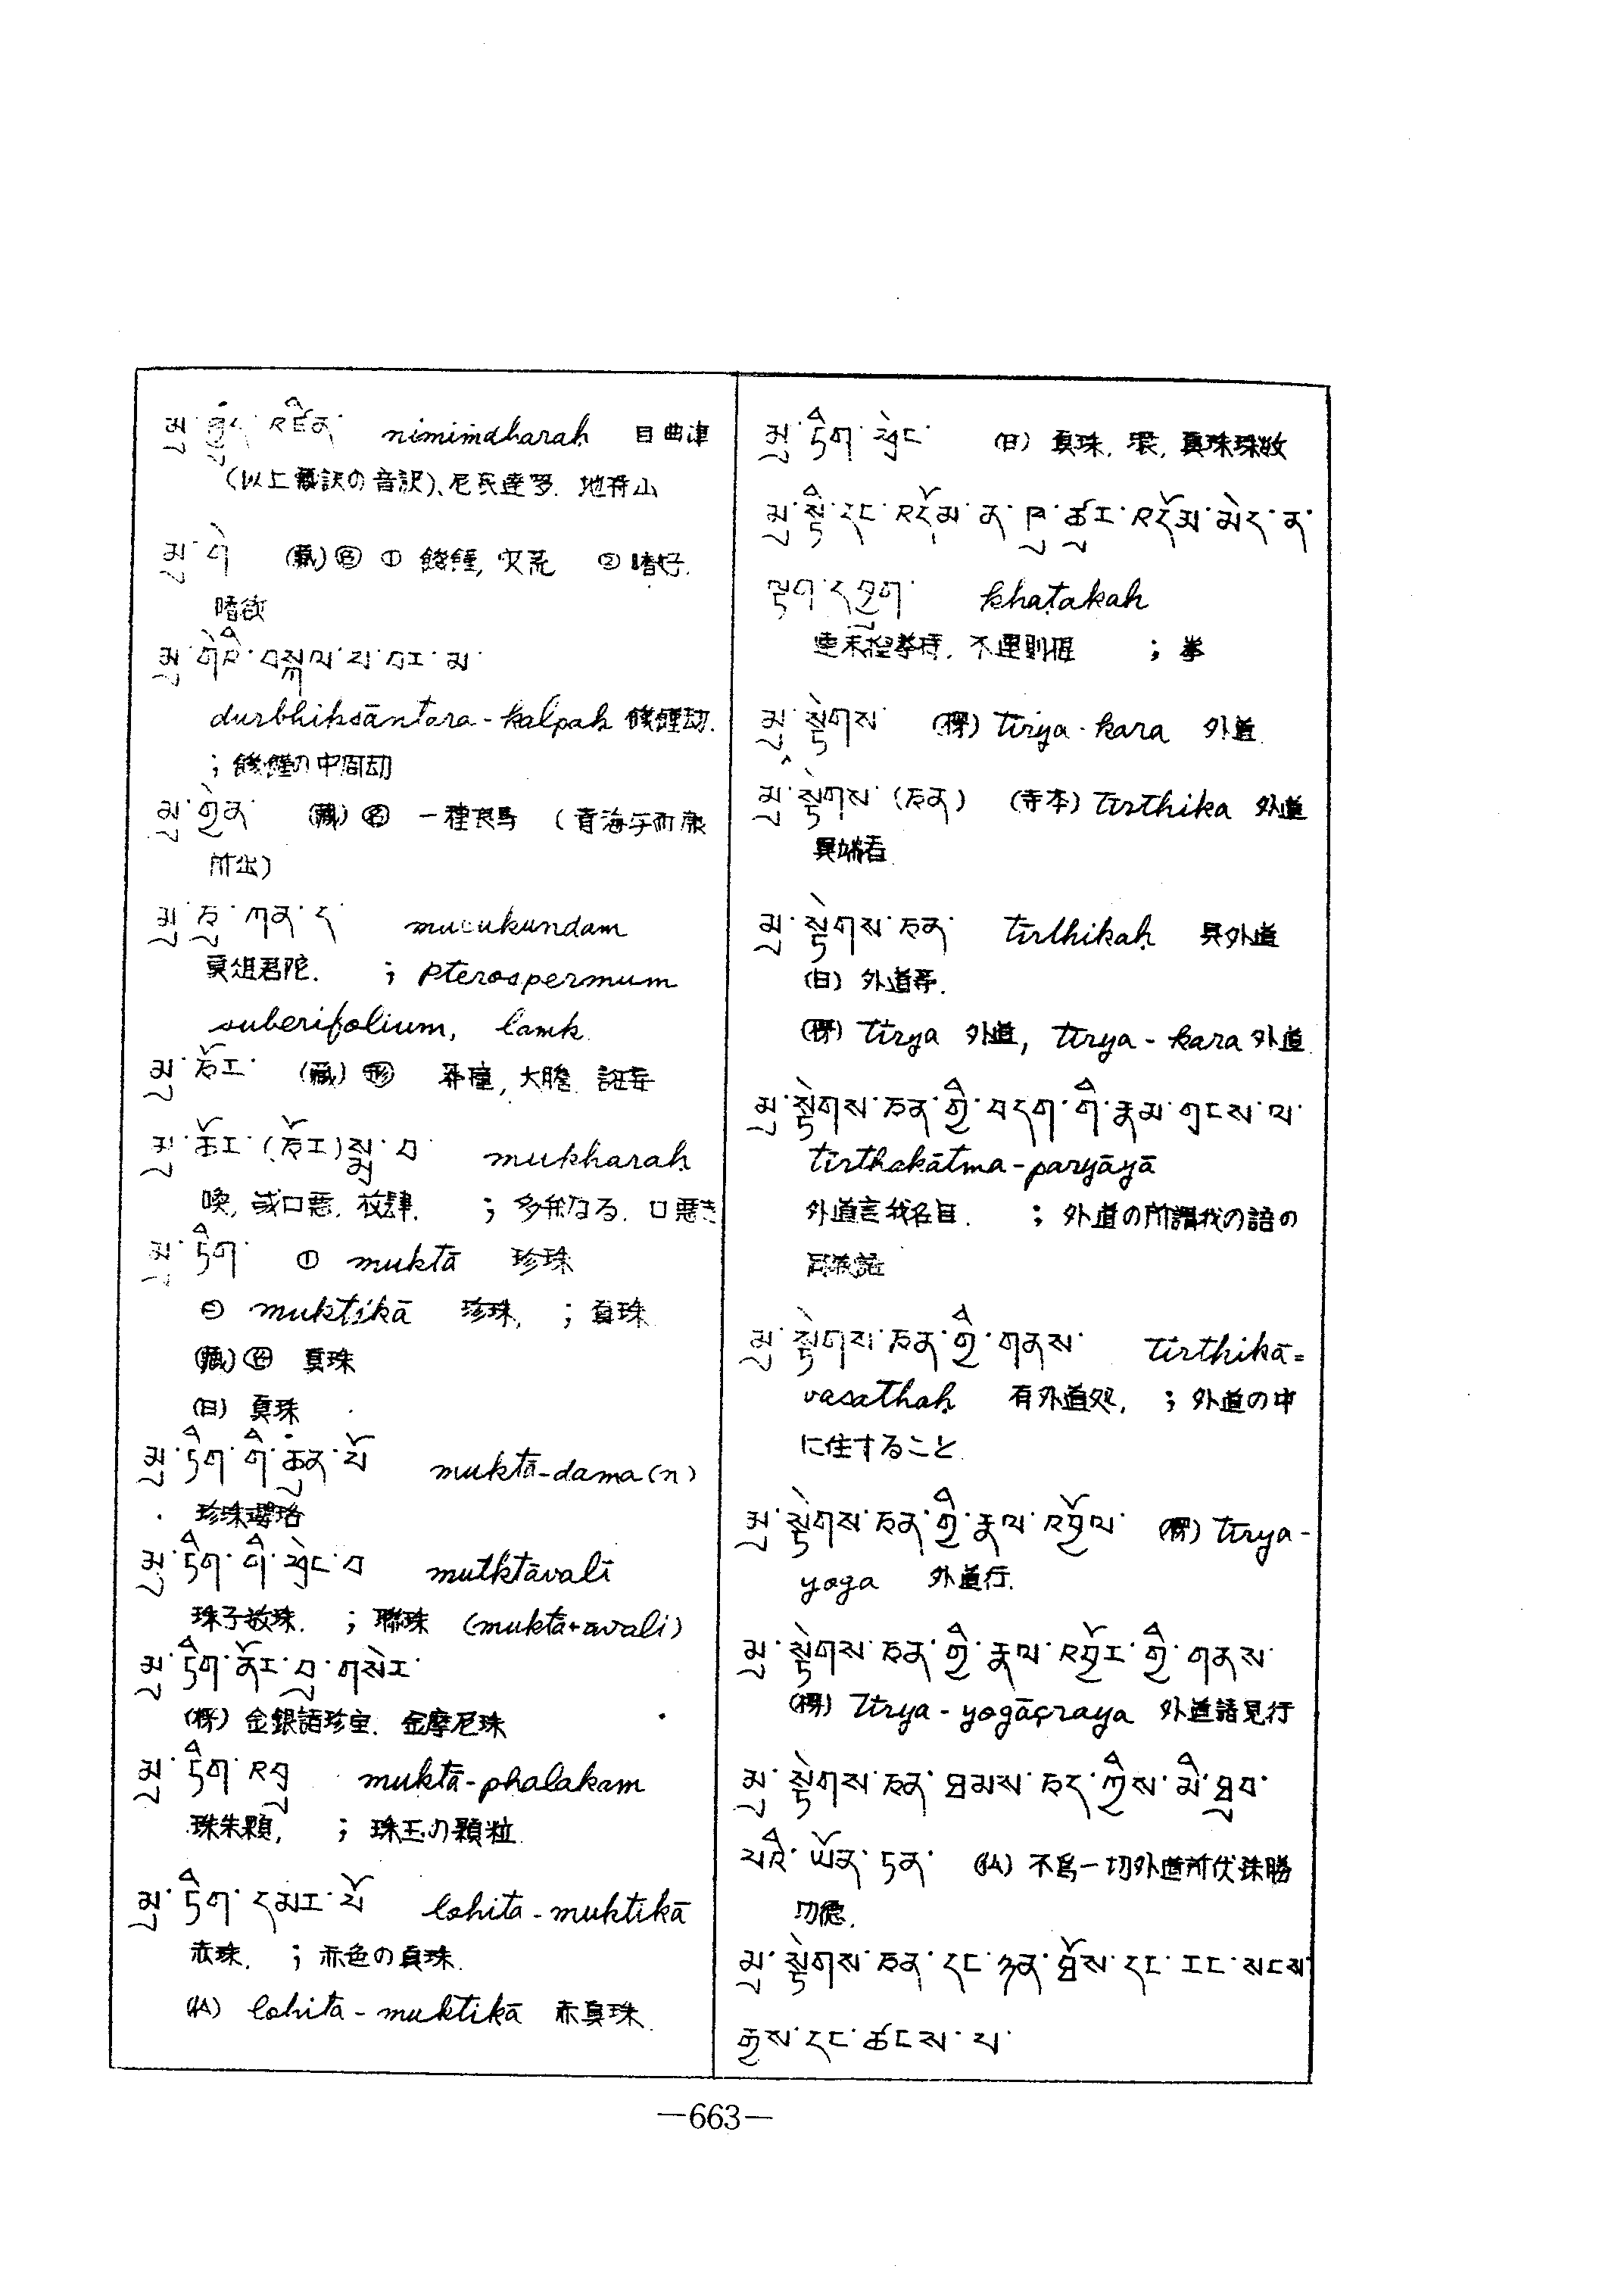 མུ་ཁྱུད་འཛིན་ nimiṁdharaḥ 目曲津
(以上舊訳の音訳)、尼民達多. 地持山
མུ་གེ (藏) 名 ① 饑饉, 災荒 ② 嗜好.
嗜欲
མུ་གེའི་བསྐལ་པ་བར་མ་
durbhiksāntara-kalpaḥ 饑饉劫.
; 饑饉の中間劫
མུ་གྱེན་ (藏) 名 一種良馬 (青海
所出)
མུ་ཙུ་ཀུན་ད་ mucukundam
; pterospermum
suberifolium, lamk.
མུ་ཅོར་ (藏) 形 莽撞, 大膽. 誑妄
མུ་ཅོར་(ཅོར)སྨྲ་བ་ mukharaḥ
喚, 或口悪. 放肆. ; 多弁なる. 口悪き
མུ་ཏིག་ ① muktā 珍珠
② muktikā 珍珠, ; 真珠
(藏) 名 真珠
(日) 真珠
མུ་ཏིག་གི་ཆུན་པོ muktā-dama(n)
珍珠瓔珞
མུ་ཏིག་གི་ཕྲེང་བ mutktāvalī
珠子数珠. ; 聯珠 (muktā+avali)
མུ་ཏིག་ནོར་བུ་གསེར་
(梵) 金銀諸珍宝. 金摩尼珠
མུ་ཏིག་འབྲུ muktā-phalakam
珠朱顆, ; 珠玉の顆粒
མུ་ཏིག་དམར་པོ lohita-muktikā
赤珠. ; 赤色の真珠.
(仏) lohita-muktikā 赤真珠.
མུ་ཏིག་ཕྲེང་ (日) 真珠, 環, 真珠珠数
མུ་སྟི་དང་འདོམ་ན་ཁུ་ཚུར་འདོམ་མེད་ན་
ལྟག་དཀྱུག་ khaṭakaḥ
; 拳
མུ་སྟེགས་ (梵) tīrya-kara 外道
མུ་སྟེགས་(ཅན) (寺本) tīrthika 外道
異端者
མུ་སྟེགས་ཅན་ tīrthikaḥ 具外道
(日) 外道等.
(梵) tīrya 外道, tīrya-kara 外道
མུ་སྟེགས་ཅན་གྱི་བདག་གི་རྣམ་གྲངས་ལ་
tīrthakātma-paryāyā
外道言我名目. ; 外道の所謂我の語の
同義語
མུ་སྟེགས་ཅན་གྱི་གནས་ tīrthikā=
vasathaḥ 有外道処, ; 外道の中
に住すること
མུ་སྟེགས་ཅན་གྱི་རྣལ་འབྱོལ་ (梵) tīrya-
yoga 外道行.
མུ་སྟེགས་ཅན་གྱི་རྣལ་འབྱོར་གྱི་གནས་
(梵) tīrya-yogāçraya 外道諸見行
མུ་སྟེགས་ཅན་ཐམས་ཅད་ཀྱིས་མི་ཐུབ་
པའི་ཡོན་ཏན་ (仏) 不為一切外道所伏殊勝
功德.
མུ་སྟེགས་ཅན་དང་ཉན་ཐོས་དང་རང་སངས་
རྒྱས་དང་ཚངས་པ་
—663—